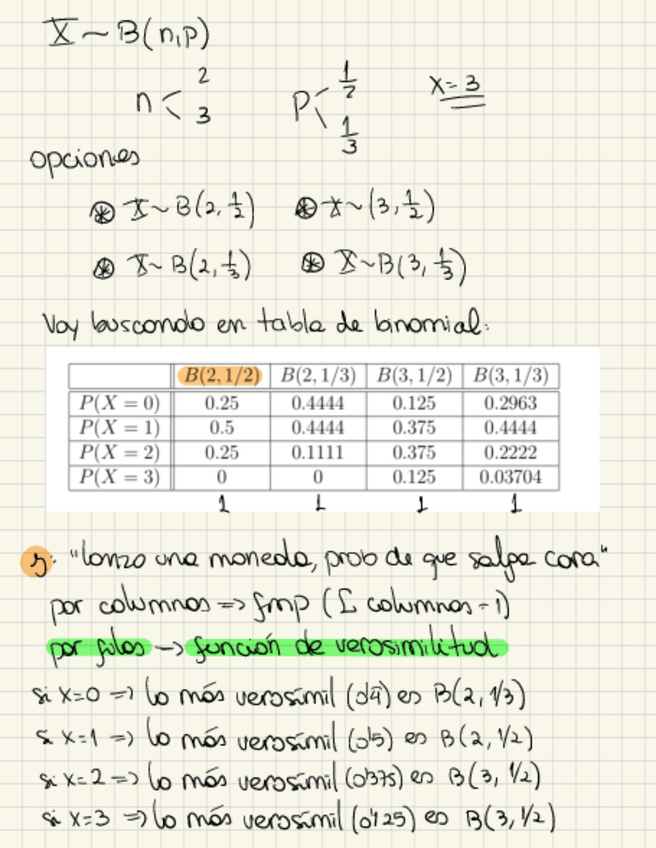 X ~ B(n,p)
n < 2 3 p < 1/2 1/3 x=3
opciones
⊛ X~B(2,1/2) ⊛ X~(3,1/2)
⊛ X~B(2,1/3) ⊛ X~B(3,1/3)
Voy buscando en tabla de binomial:
B(2,1/2) B(2,1/3) B(3,1/2) B(3,1/3)
P(X = 0) 0.25 0.4444 0.125 0.2963
P(X = 1) 0.5 0.4444 0.375 0.4444
P(X = 2) 0.25 0.1111 0.375 0.2222
P(X = 3) 0 0 0.125 0.03704
1 1 1 1
"lanzo una moneda, prob de que salga cara"
por columnas => fmp (Σ columnas = 1)
por filas -> función de verosimilitud
si x=0 => lo más verosímil (0'4) es B(2, 1/3)
si x=1 => lo más verosímil (0'5) es B(2, 1/2)
si x=2 => lo más verosímil (0'375) es B(3, 1/2)
si x=3 => lo más verosímil (0'125) es B(3, 1/2)